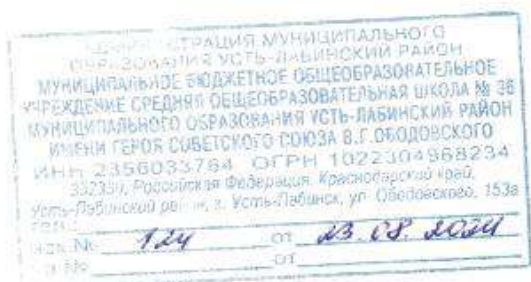 АДМИНИСТРАЦИЯ МУНИЦИПАЛЬНОГО
ОБРАЗОВАНИЯ УСТЬ-ЛАБИНСКИЙ РАЙОН
МУНИЦИПАЛЬНОЕ БЮДЖЕТНОЕ ОБЩЕОБРАЗОВАТЕЛЬНОЕ
УЧРЕЖДЕНИЕ СРЕДНЯЯ ОБЩЕОБРАЗОВАТЕЛЬНАЯ ШКОЛА № 36
МУНИЦИПАЛЬНОГО ОБРАЗОВАНИЯ УСТЬ-ЛАБИНСКИЙ РАЙОН
ИМЕНИ ГЕРОЯ СОВЕТСКОГО СОЮЗА В.Г.ОБОДОВСКОГО
ИНН 2356033764 ОГРН 1022304968234
352330, Российская Федерация, Краснодарский край,
Усть-Лабинский район, г. Усть-Лабинск, ул. Ободовского, 153а
Исх.№ 124 от 23.08.2024
№ от